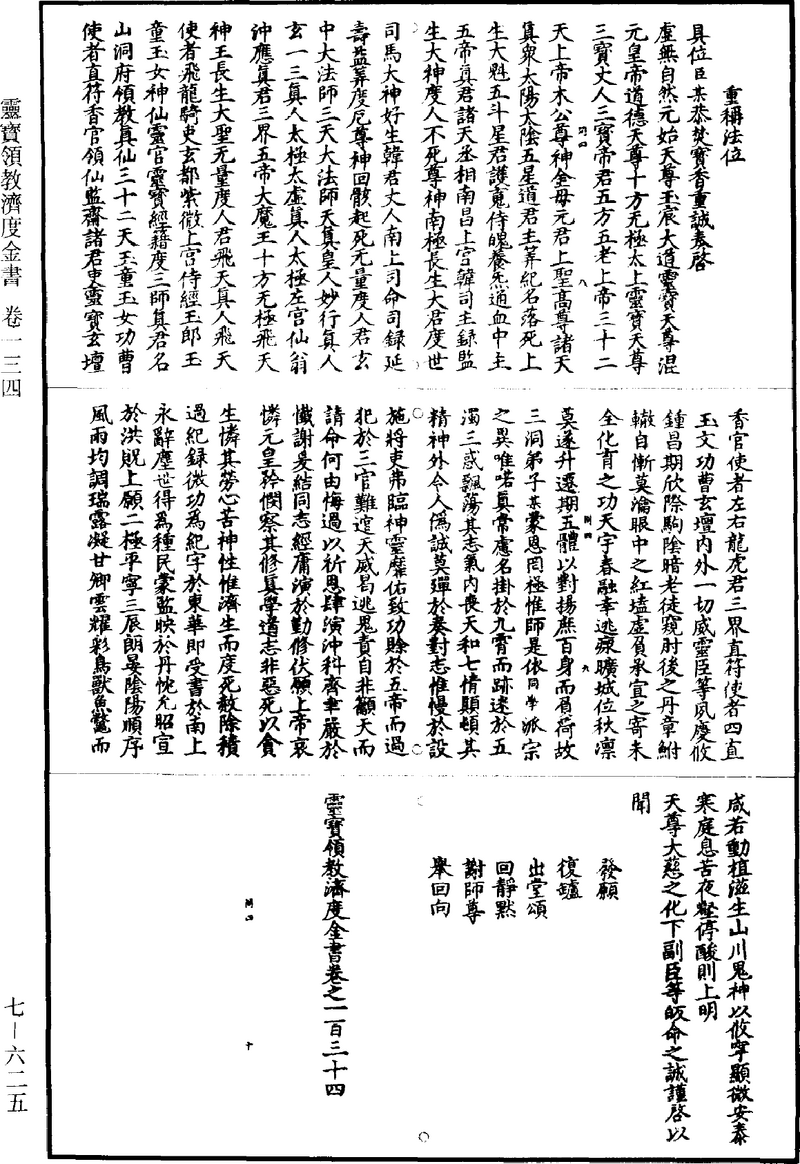 重稱法位
具位臣某恭焚寶香重誠奏啓
虛無自然元始天尊玉宸大道靈寶天尊混
元皇帝道德天尊十方无極太上靈寶天尊
三寶丈人三寶帝君五方五老上帝三十二
天上帝木公尊神金母元君上聖高尊諸天
真衆太陽太陰五星道君主筭紀名落死上
生大魁五斗星君護䰟侍魄養炁通血中主
五帝真君諸天丞相南昌上宮韓司主録監
生大神度人不死尊神南極長生大君度世
司馬大神好生韓君丈人南上司命司録延
壽益筭度厄尊神回骸起死无量度人君玄
中大法師三天大法師天真皇人妙行真人
玄一三真人太極太虛真人太極左宮仙翁
沖應真君三界五帝大魔王十方无極飛天
神王長生大聖无量度人君飛天真人飛天
使者飛龍騎吏玄都紫微上宮侍經玉郎玉
童玉女神仙靈官靈寶經籍度三師真君名
山洞府領教真仙三十二天玉童玉女功曹
使者直符香官領仙監齋諸君吏靈寶玄壇
香官使者左右龍虎君三界直符使者四直
玉文功曹玄壇内外一切威靈臣等夙慶攸
鍾昌期欣際駒陰暗老徒窺肘後之丹章鮒
轍自慚莫瀹眼中之紅墟虛負承宣之寄未
全化育之功天宇春融幸逃瘝曠城位秩凛
莫遂升遷期五體以對揚庶百身而負荷故
三洞弟子某蒙恩罔極惟師是依同學派宗
之異唯喏真常慮名掛於九霄而跡迷於五
濁三惑飄蕩其志氣内喪天和七情顛頓其
精神外令人僞誠莫殫於奏對志惟慢於設
施將吏弗臨神靈靡佑致功賒於五帝而過
犯於三官難逭天威曷逃鬼責自非籲天而
請命何由悔過以祈恩肆演沖科齋華嚴於
懴謝爰結同志經庸演於勤修伏願上帝哀
憐元皇矜憫察其修真學道志非惡死以貪
生憐其勞心苦神性惟濟生而度死赦除積
過紀録微功爲紀字於東華即受書於南上
永辭塵世得為種民蒙監映於丹忱允昭宣
於洪貺上願二極平寧三辰朗晏陰陽順序
風雨均調瑞露凝甘卿雲耀彩鳥獸魚鼈而
咸若動植滋生山川鬼神以攸寧顯微安泰
寒庭息苦夜壑停酸則上明
天尊大慈之化下副臣等皈命之誠謹啓以
聞
發願
復爐
出堂頌
回靜默
謝師尊
舉回向
靈寶領教濟度金書卷之一百三十四
靈寶領教濟度金書 卷一三四
七—六二五